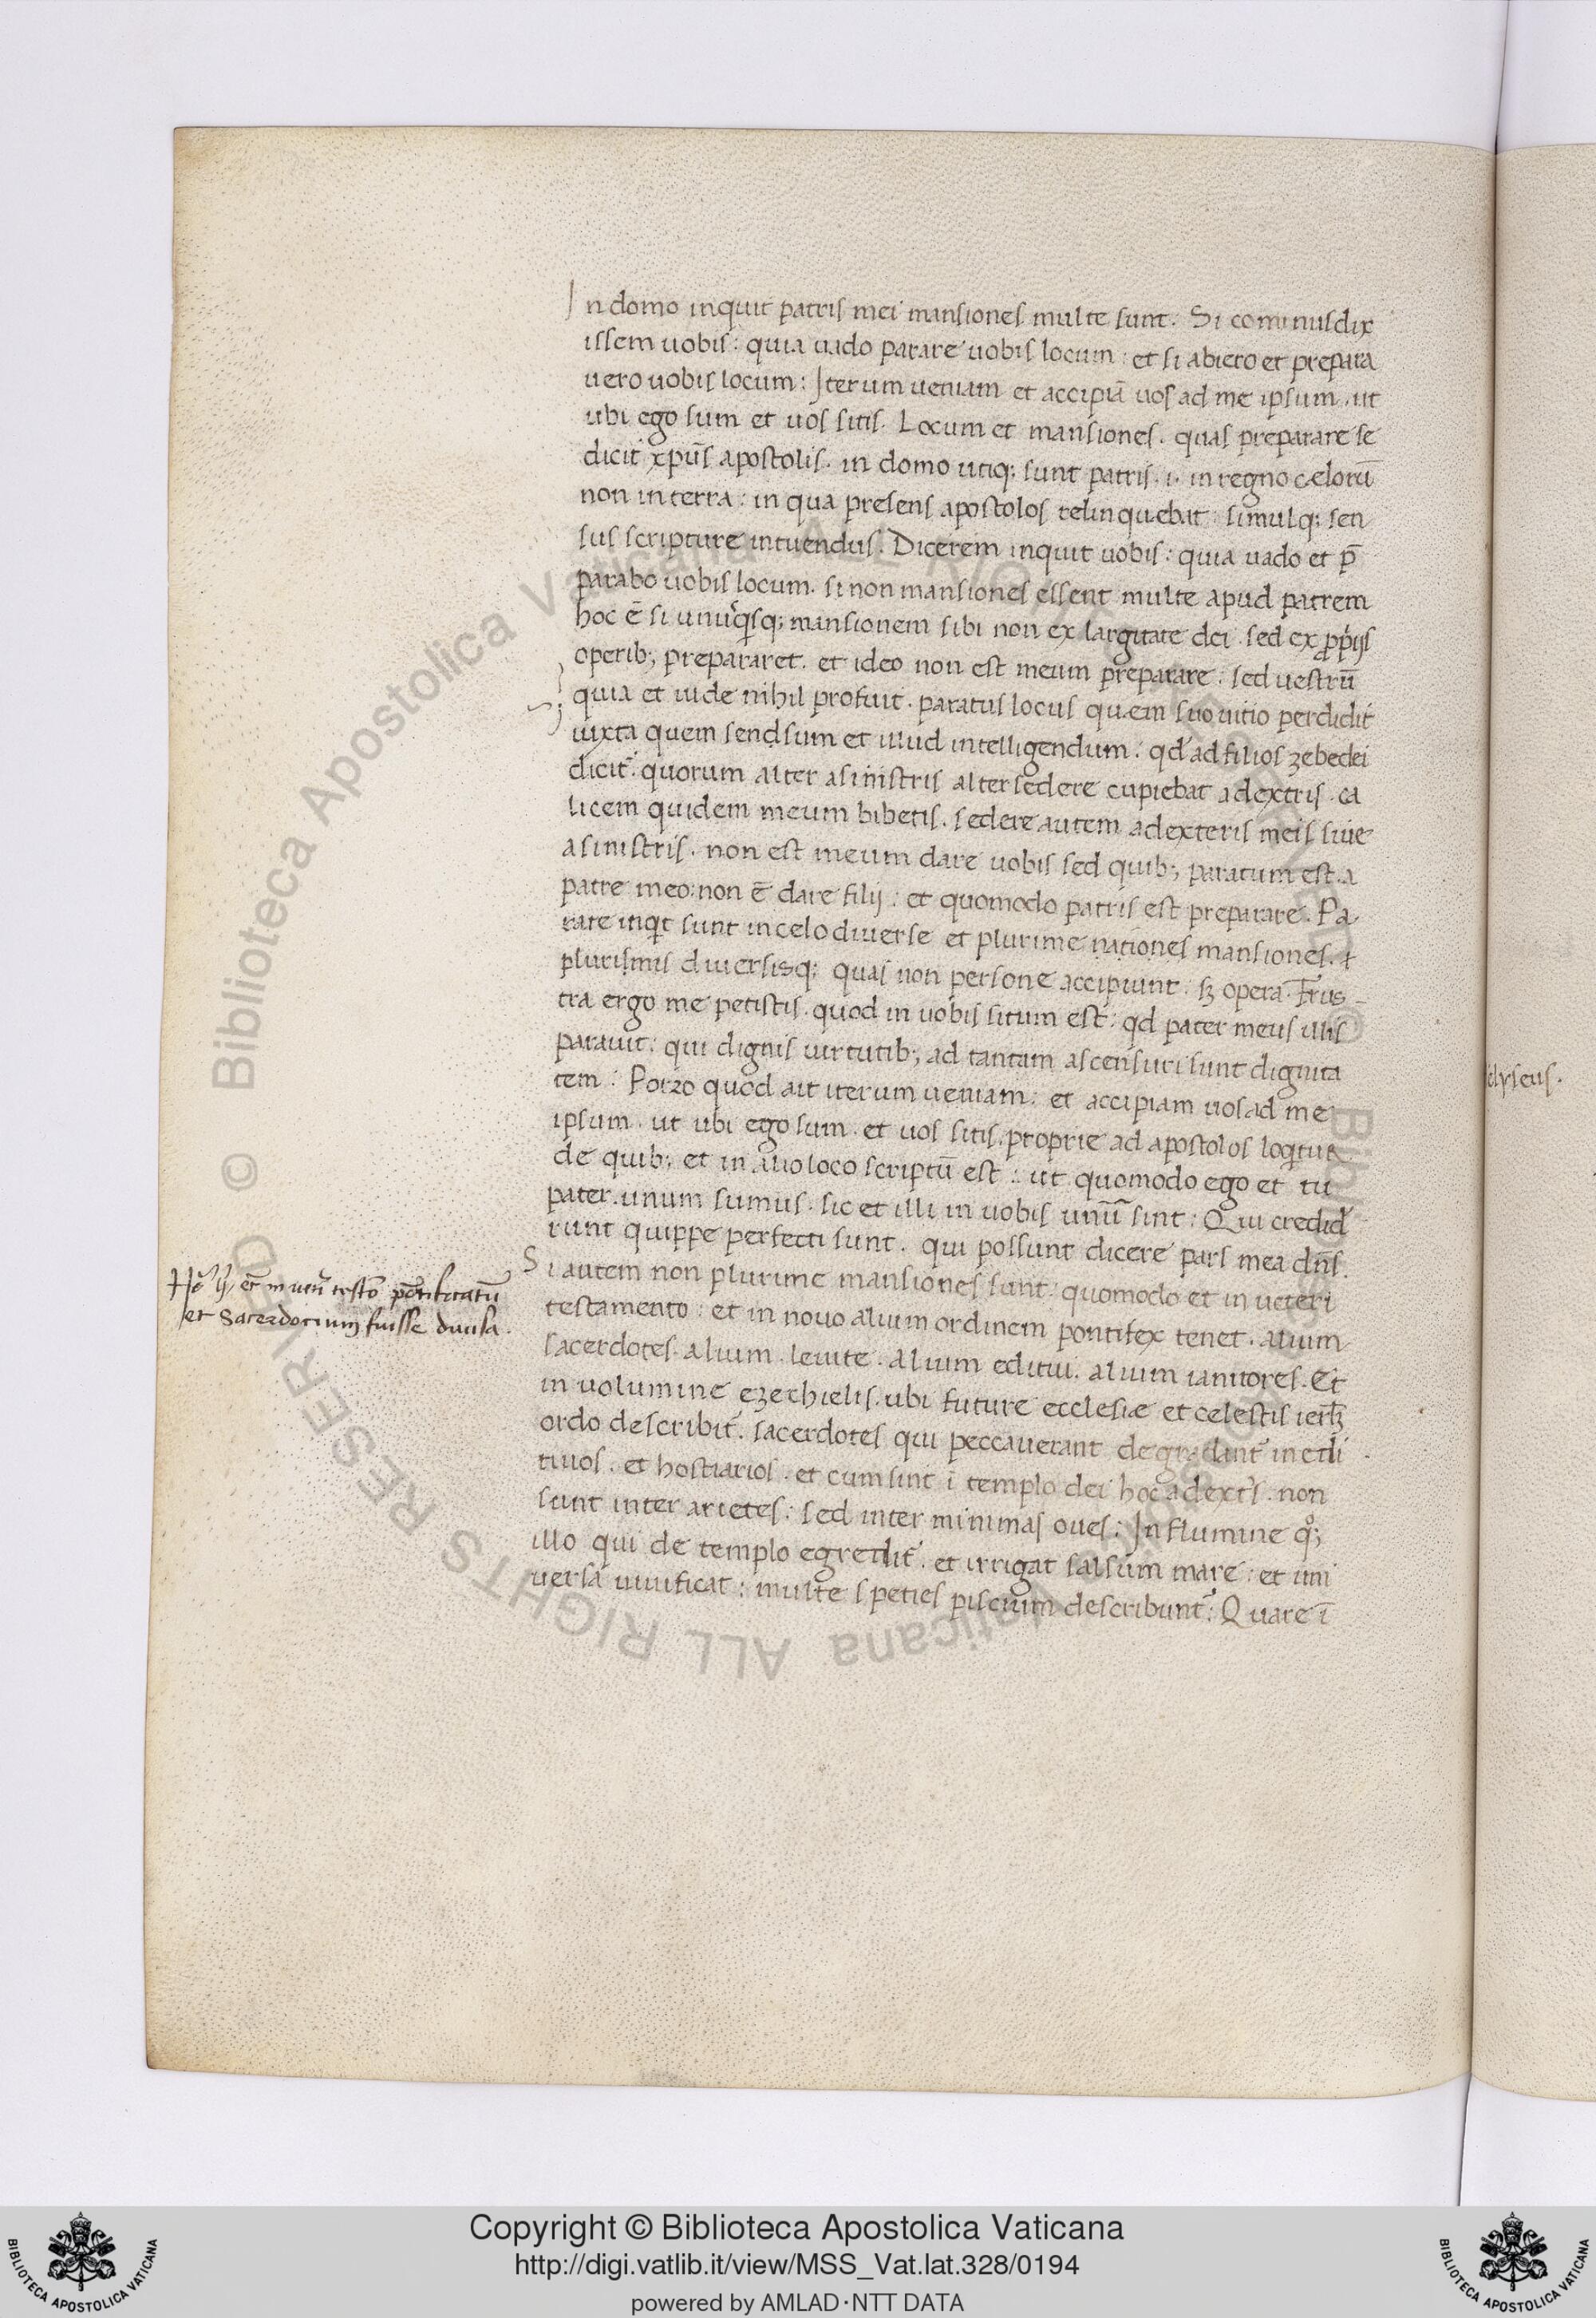 In domo inquit patris mei mansiones multe sunt. Si cominus dix
issem uobis: quia uado parare uobis locum: et si abiero et prepara
uero uobis locum: Iterum ueniam et accipiā uos ad me ipsum. ut
ubi ego sum et uos sitis. Locum et mansiones. quas preparare se
dicit xp̄us apostolis. in domo utiq; sunt patris. i. in regno celorū
non in terra: in qua presens apostolos relinquebat: simulq; sen
sus scripture intuendus. Dicerem inquit uobis: quia uado et p̄
parabo uobis locum. si non mansiones essent multe apud patrem
hoc ē si unuq̇sq; mansionem sibi non ex largitate dei. sed ex ꝓpijs
operib; prepararet. et ideo non est meum preparare: sed uestrū
quia et iude nihil profuit. paratus locus quem suo uitio perdidit
iuxta quem sendsum et illud intelligendum: qd ad filios zebedei
dicit̄. quorum alter a sinistris alter sedere cupiebat a dextris. ca
licem quidem meum bibetis. sedere autem a dexteris meis siue
a sinistris. non est meum dare uobis sed quib; paratum est. a
patre meo: non ē dare filij: et quomodo patris est preparare. Pa
rate inqt sunt in celo diuerse et plurime nationes mansiones. &
plurismis diuersisq; quas non persone accipiunt: sꝫ opera. Frus
tra ergo me petistis. quod in uobis situm est: qd pater meus illis
parauit: qui dignis uirtutib; ad tantam ascensuri sunt dignita
tem: Porro quod ait iterum ueniam: et accipiam uos ad me
ipsum. ut ubi ego sum. et uos sitis. proprie ad apostolos loqitur
de quib; et in alio loco scriptū est: ut quomodo ego et tu
pater. unum sumus. sic et illi in uobis unū sint: Qui credid
runt quippe perfecti sunt. qui possunt dicere pars mea dn̄s.
Si autem non plurime mansiones sunt: quomodo et in ueteri
testamento: et in nouo alium ordinem pontifex tenet. alium
sacerdotes. alium. leuite. alium editui. alium ianitores. Et
in uolumine ezechielis. ubi future ecclesiæ et celestis ierlꝫ
ordo describit̄. sacerdotes qui peccauerant degradant̄ in edi
tuos. et hostiarios. et cum sint ī templo dei hoc a dextrs. non
sunt inter arietes: sed inter minimas oues: In flumine qͦ;
illo qui de templo egredit̄. et irrigat salsum mare: et uni
uersa uiuificat: multe speties piscium describunt̄: Quare ī
et sacerdotium fuisse diuisa.
elyseus.
Copyright © Biblioteca Apostolica Vaticana
http://digi.vatlib.it/view/MSS_Vat.lat.328/0194
powered by AMLAD·NTT DATA
BIBLIOTECA APOSTOLICA VATICANA
BIBLIOTECA APOSTOLICA VATICANA